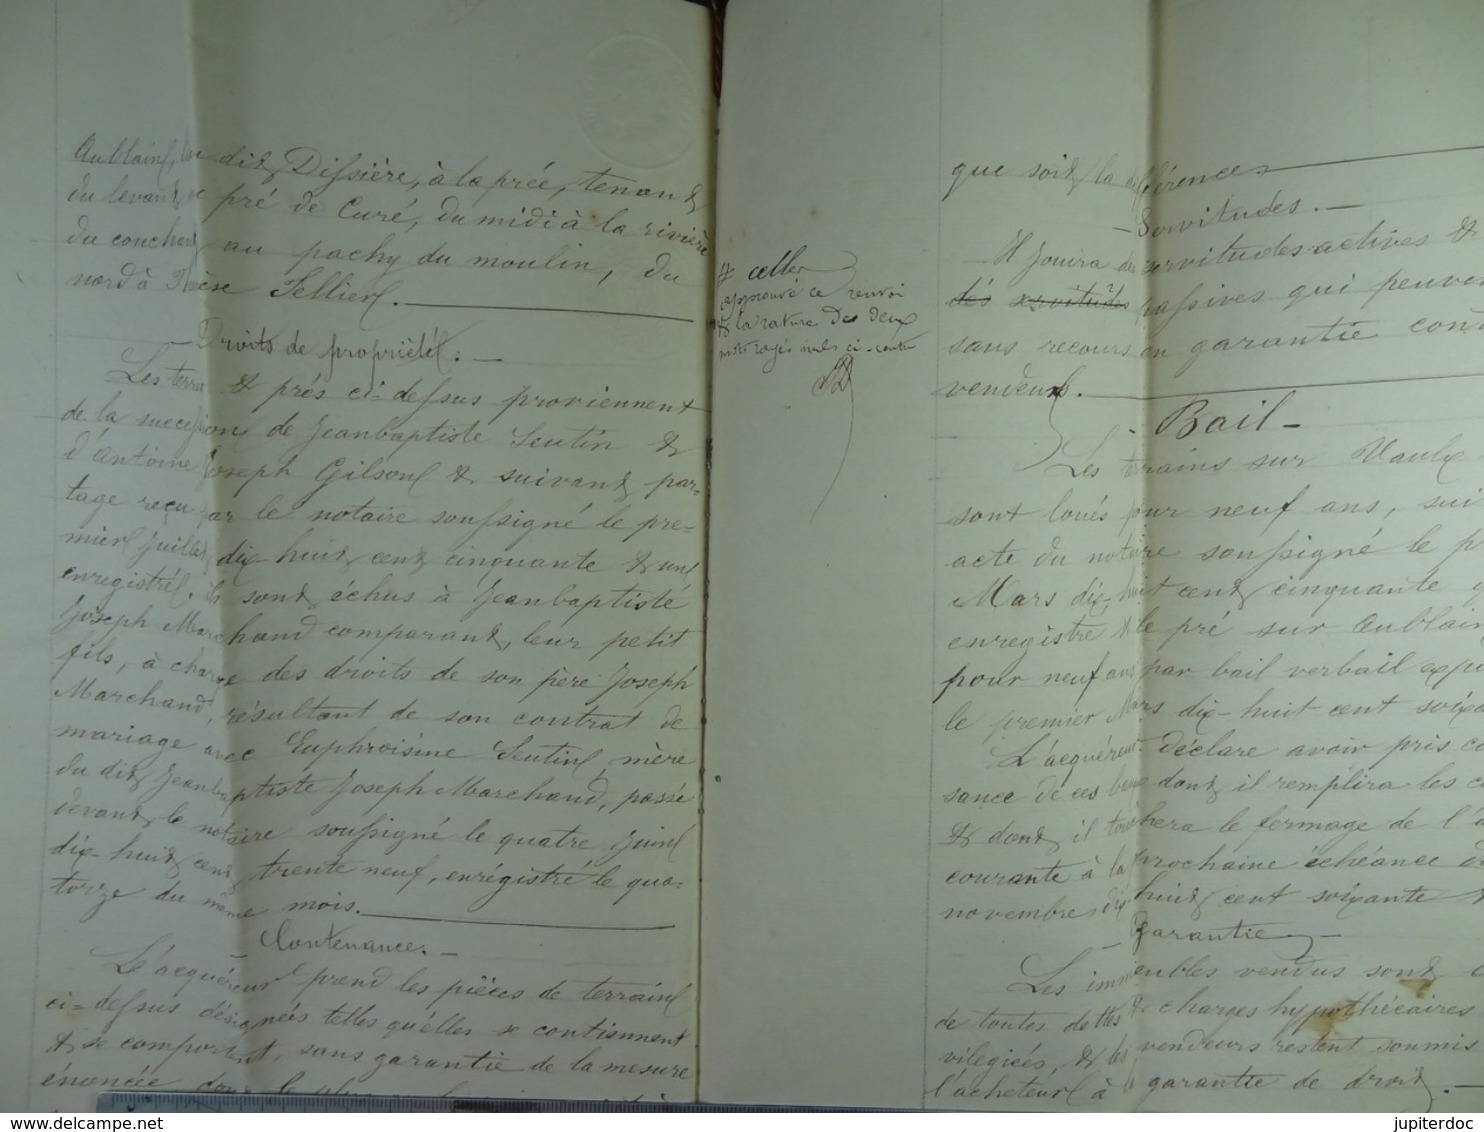 Aublain, lieu dit Dissière, à la prée, tenant
du levant au pré de Curé, du midi à la rivière
du couchant au pachy du moulin, du
nord à Tellier.
Droits de propriété.
Les terres & prés ci-dessus proviennent
de la succession de Jeanbaptiste Seutin &
d'Antoine Joseph Gilson & suivant par-
tage reçu par le notaire soussigné le pre-
mier Juillet dix-huit cent cinquante & un
enregistré. ils sont échus à Jeanbaptiste
Joseph Marchand comparant, leur petit
fils, à charge des droits de son père Joseph
Marchand, résultant de son contrat de
mariage avec Euphroisine Seutin, mère
du dit Jeanbaptiste Joseph Marchand, passé
devant le notaire soussigné le quatre Juin
dix-huit cent trente neuf, enrégistré le qua-
torze du même mois.
Contenance.
L'acquéreur prend les pièces de terrain
ci-dessus désignées telles qu'elles se contiennent
& se comportent, sans garantie de la mesure
énoncée
# celles
approuvé ce renvoi
& la rature des deux
mots rayés nuls ci-contre
que soit la différence
Servitudes.
Il jouira des servitudes actives &
dés servitudes passives qui peuven
sans recours en garantie cont
vendeurs.
Bail
Les terrains sur Vaulx
sont loués pour neuf ans, sui
acte du notaire soussigné le p
Mars dix-huit cent cinquante
enregistré & le pré sur Aublain
pour neuf ans par bail verbail expi
le premier Mars dix-huit cent soixa
L'acquéreur déclare avoir pris co
sance de ces baux dont il remplira les c
& dont il touchera le fermage de l'a
courante à la prochaine échéance d
novembre dix huit cent soixante &
Garantie
Les immeubles vendus sont
de toutes dettes & charges hypothécaires
vilégiées, & les vendeurs restent soumis
l'acheteur à la garantie de droit.
jupiterdoc